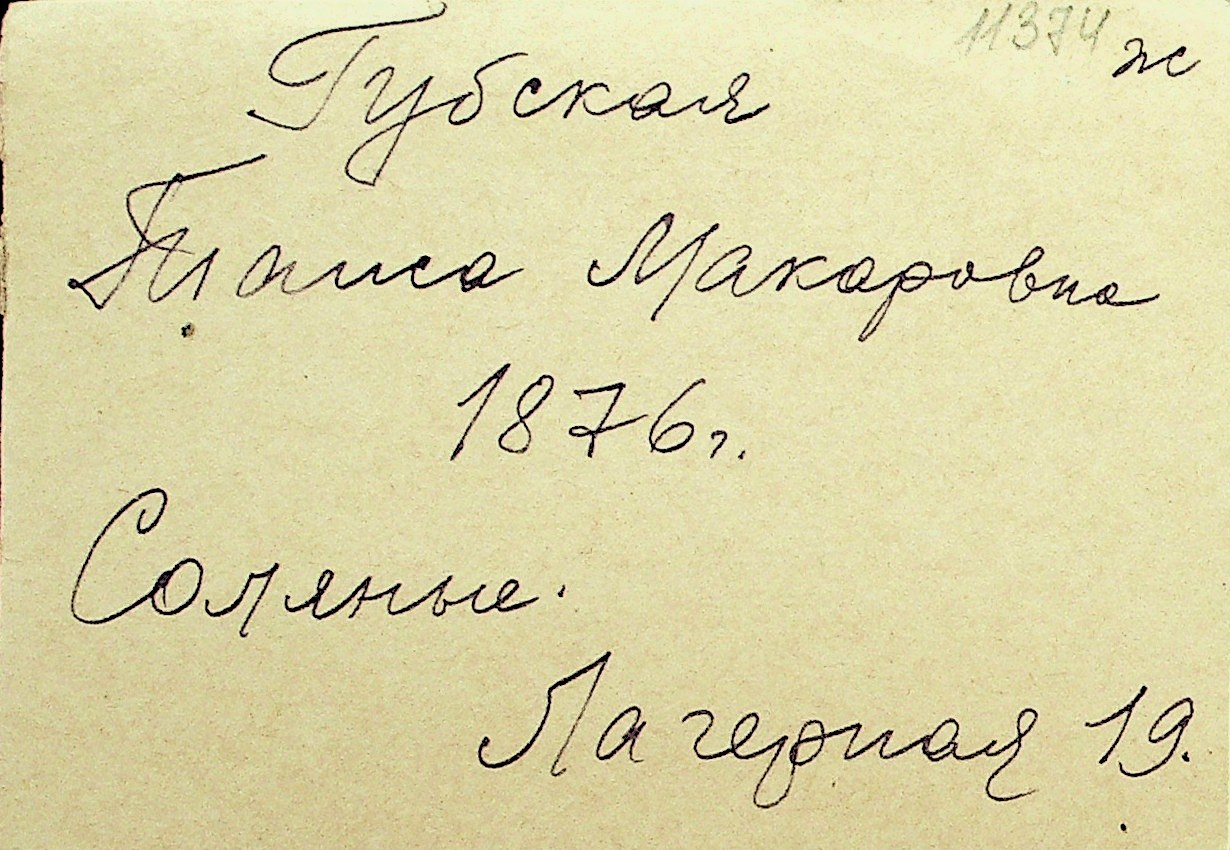 11374 ж
Губская
Таиса Макаровна
1876г.
Соляные.
Лагерная 19.